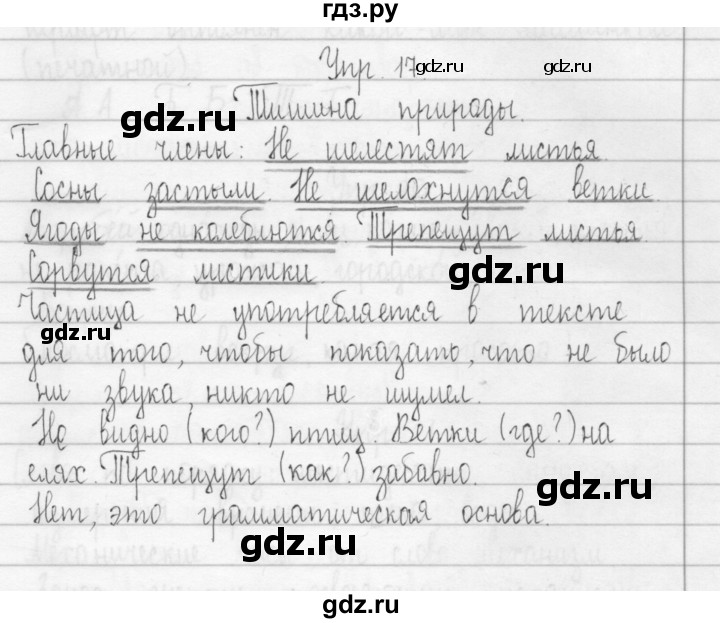 гдз.ру
Упр. 17
gdz.ru gdz.ru
gdz.ru
Тишина природы.
gdz.ru
Главные члены: Не шелестят листья.
Сосны застыли. Не шелохнутся ветки.
Ягоды не колеблются. Трепещут листья.
gdz.ru
Сорвутся листики.
Частица не употребляется в тексте
gdz.ru
для того, чтобы показать, что не было
ни звука, никто не шумел.
Не видно (кого?) птиц. Ветки (где?) на
елях. Трепещут (как?) забавно.
gdz.ru
Нет, это грамматическая основа.
gdz.ru
gdz.ru